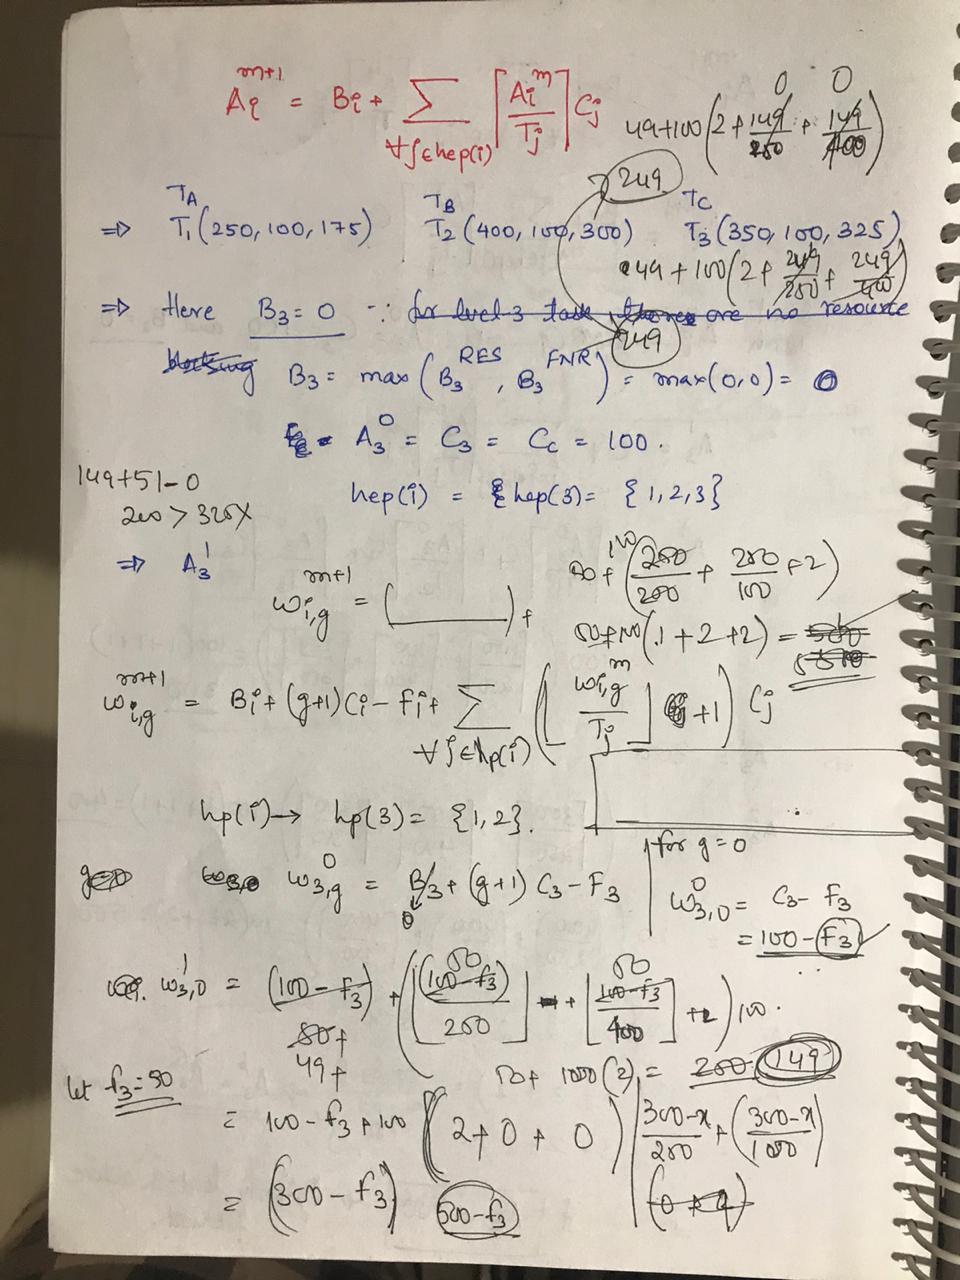 A_i^{m+1} = B_i + ∑_{∀j∈hep(i)} ⌈A_i^m / T_j⌉ C_j
49+100(2+149/250+149/400) 0 0
249
T_A T_B T_C
⇒ T_1(250,100,175) T_2(400,100,300) T_3(350,100,325)
49+100(2+249/250+249/400)
⇒ Here B_3=0 ∵ for level-3 task there are no resource
blocking B_3 = max(B_3^{RES}, B_3^{FNR}) = max(0,0) = 0
249
A_3^0 = C_3 = C_C = 100.
149+51-0
hep(i) = hep(3) = {1,2,3}
200 > 325 X
⇒ A_3^1
w_{i,g}^{m+1} = ( ) +
50+(250/250+250/100+2)
100
50+100(1+2+2) = 500
550
w_{i,g}^{m+1} = B_i+(g+1)C_i-F_i+ ∑_{∀j∈hp(i)} (⌊w_{i,g}^m / T_j⌋ +1) C_j
hp(i) → hp(3) = {1,2}.
for g=0
w_{3,g}^0 = B_3+(g+1) C_3-F_3
0
w_{3,0}^0 = C_3-F_3
= 100-F_3
w_{3,0}^1 = (100-f_3) + (⌊(100-f_3)/250⌋ + ⌊100-f_3/400⌋ +2) 100.
50 50
50+
49+
50+100(2) = 250 149
let f_3=50
= 100-f_3+100 (2+0+0)
300-x/250 + (300-x/100)
= (300-f_3) 500-f_3